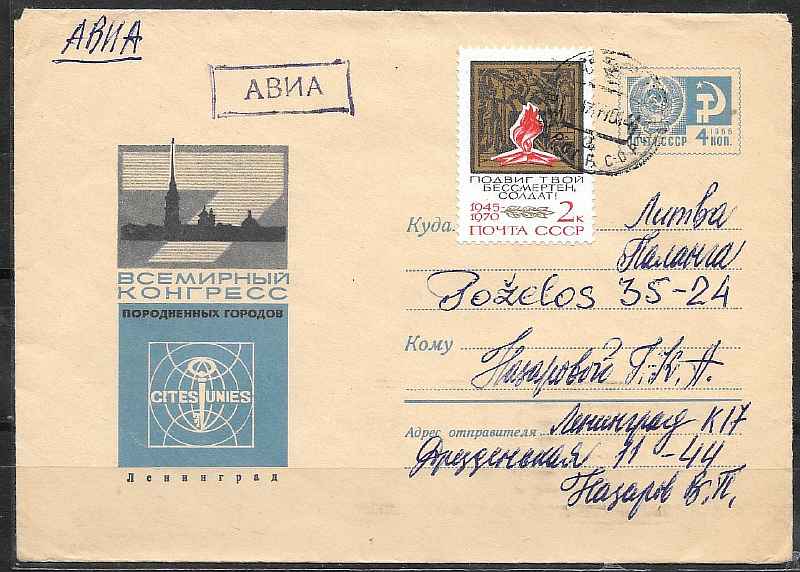 АВИА
АВИА
ПОДВИГ ТВОЙ
БЕССМЕРТЕН,
СОЛДАТ!
1945-
1970
2к
ПОЧТА СССР
1966
ПОЧТА СССР 4 КОП.
ВСЕМИРНЫЙ
КОНГРЕСС
ПОРОДНЕННЫХ ГОРОДОВ
CITES UNIES
Ленинград
Куда Литва
Паланга
Poželos 35-24
Кому Назаровой Г.К.А.
Адрес отправителя Ленинград К17
Дрезденская 11-44
Назаров В.П.